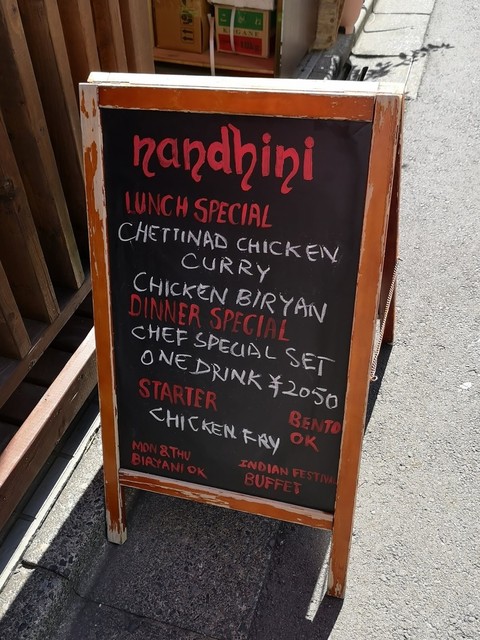 nandhini
LUNCH SPECIAL
CHETTINAD CHICKEN
CURRY
CHICKEN BIRYAN
DINNER SPECIAL
CHEF SPECIAL SET
ONE DRINK ¥2050
STARTER
CHICKEN FRY
BENTO
OK
MON & THU
BIRYANI OK
INDIAN FESTIVA
BUFFET